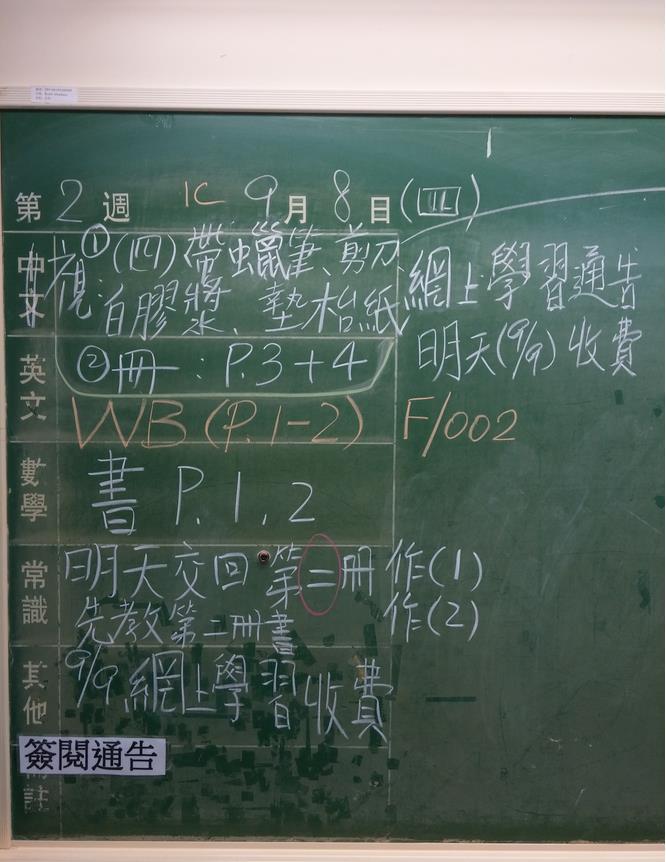 第2週 1C 9月8日(四)
中文
視:①(四)帶蠟筆、剪刀、
白膠漿、墊枱紙
②冊:P.3+4
網上學習通告
明天(9/9)收費
英文
WB(P.1-2) F/002
數學
書 P.1,2
常識
明天交回第二冊作(1)
先教第二冊書 作(2)
其他
9/9網上學習收費
簽閱通告